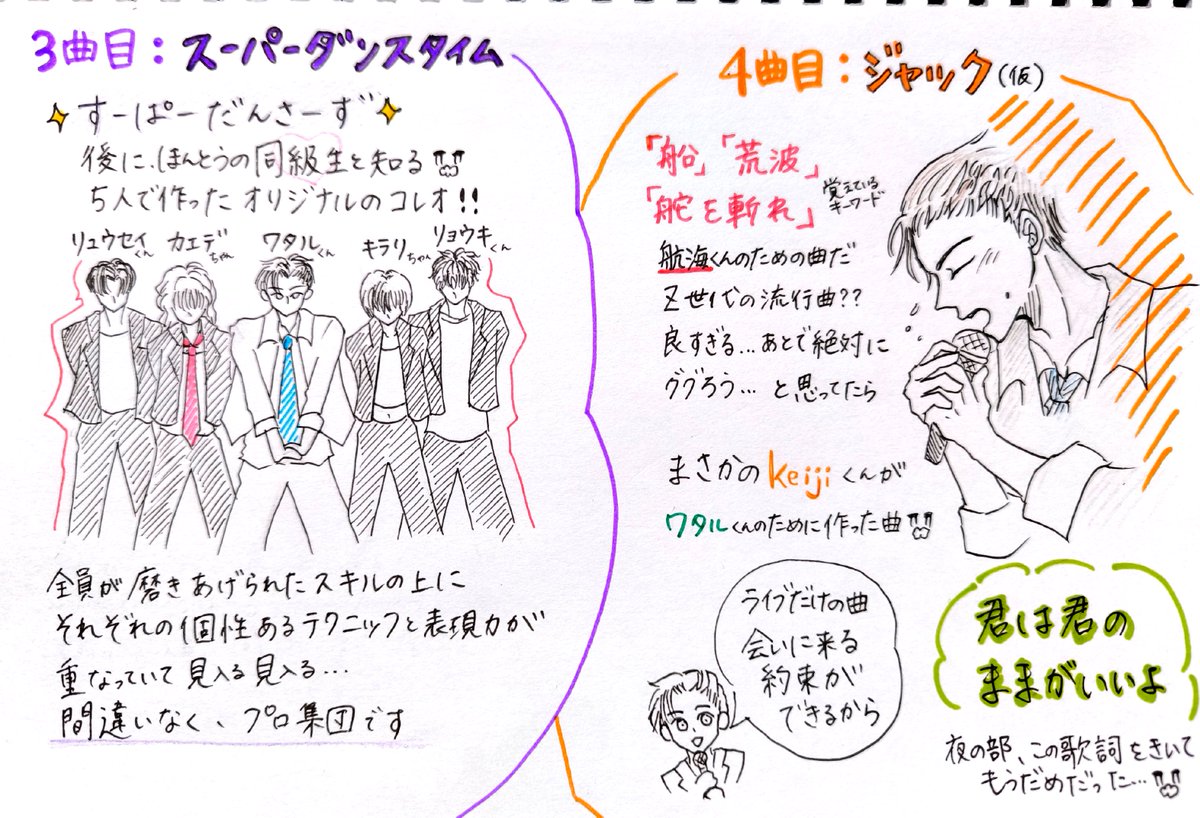 3曲目：スーパーダンスタイム
すーぱーだんさーず
後に、ほんとうの同級生と知る
5人で作ったオリジナルのコレオ！！
リュウセイくん
カエデちゃん
ワタルくん
キラリちゃん
リョウキくん
全員が磨きあげられたスキルの上に
それぞれの個性あるテクニックと表現力が
重なっていて見入る見入る…
間違いなく、プロ集団です
4曲目：ジャック(仮)
「船」「荒波」
「舵を斬れ」
覚えている
キーワード
航海くんのための曲だ
Z世代の流行曲??
良すぎる…あとで絶対に
ググろう…と思ってたら
まさかのkeijiくんが
ワタルくんのために作った曲
ライブだけの曲
会いに来る
約束が
できるから
君は君の
ままがいいよ
夜の部、この歌詞をきいて
もうだめだった…